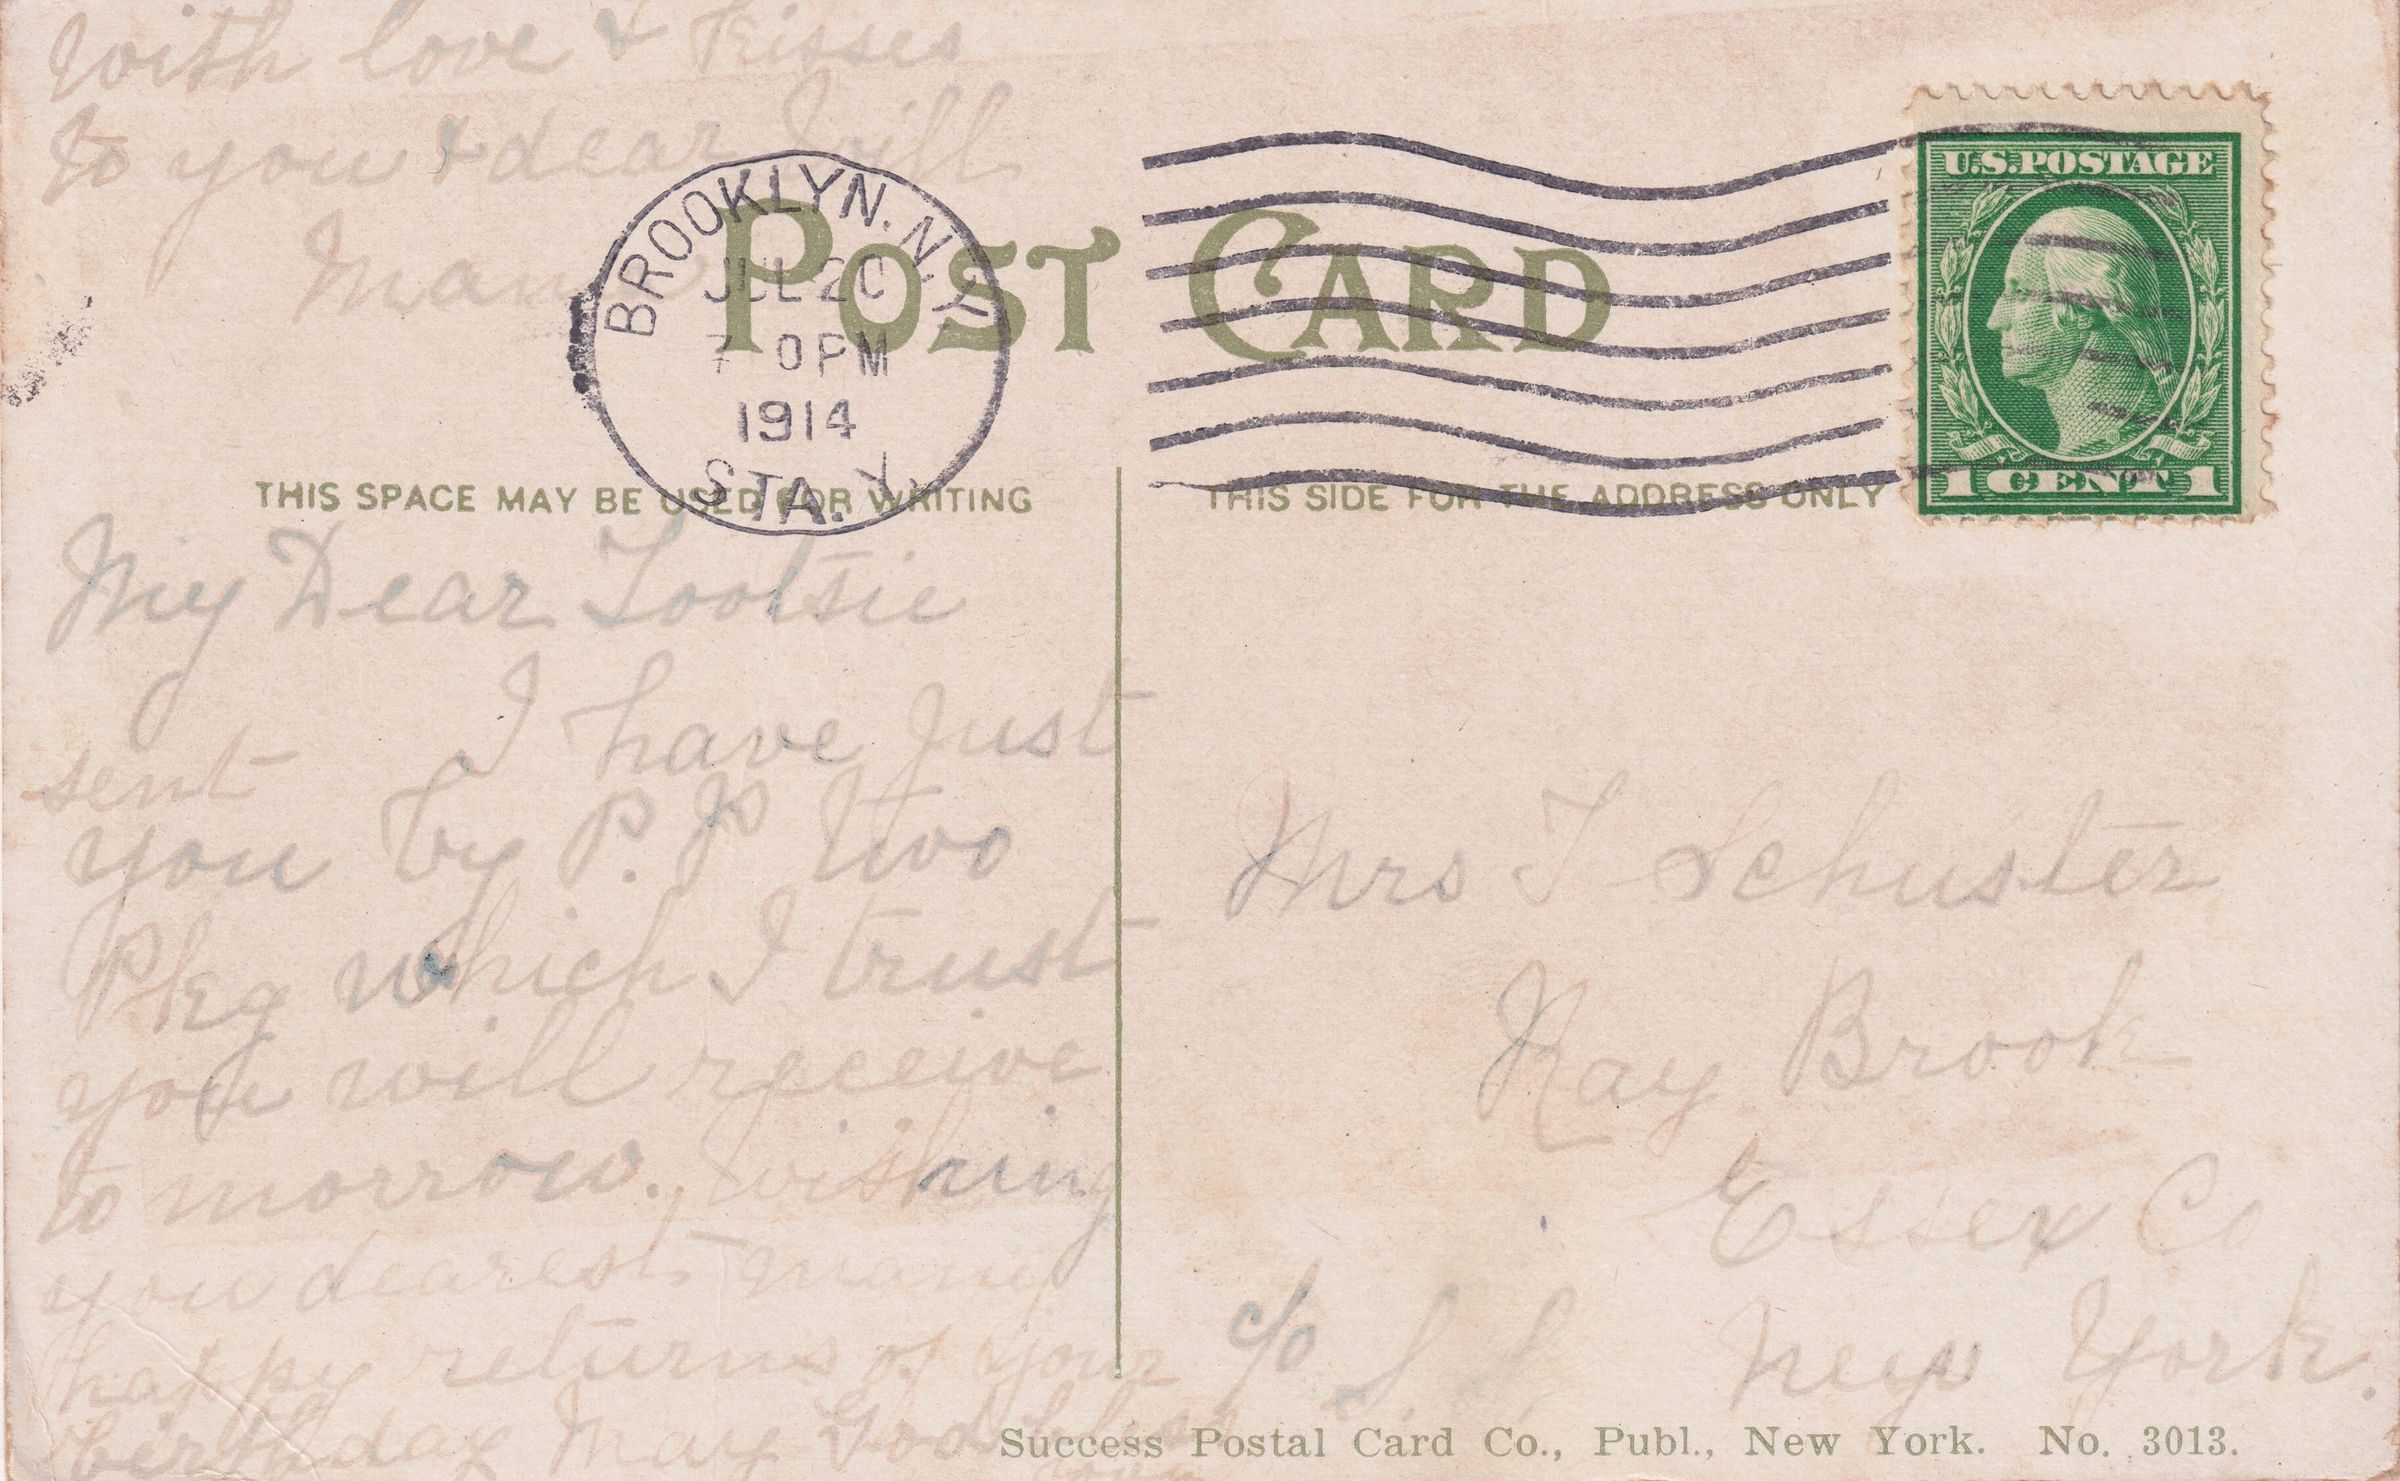 with love & Kisses
to you & dear Will
BROOKLYN, N.Y.
JUL 20
7 0 PM
1914
STA. Y.
POST CARD
U.S. POSTAGE
1 CENT 1
THIS SPACE MAY BE USED FOR WRITING
THIS SIDE FOR THE ADDRESS ONLY
My Dear Tootsie
I have just
sent
you by P.P two
Pkg which I trust
you will receive
to morrow. wishing
you dearest many
happy returns of your
birthday May God bless
Mrs T Schuster
Ray Brook
Essex Co
New York.
c/o S S
Success Postal Card Co., Publ., New York. No. 3013.